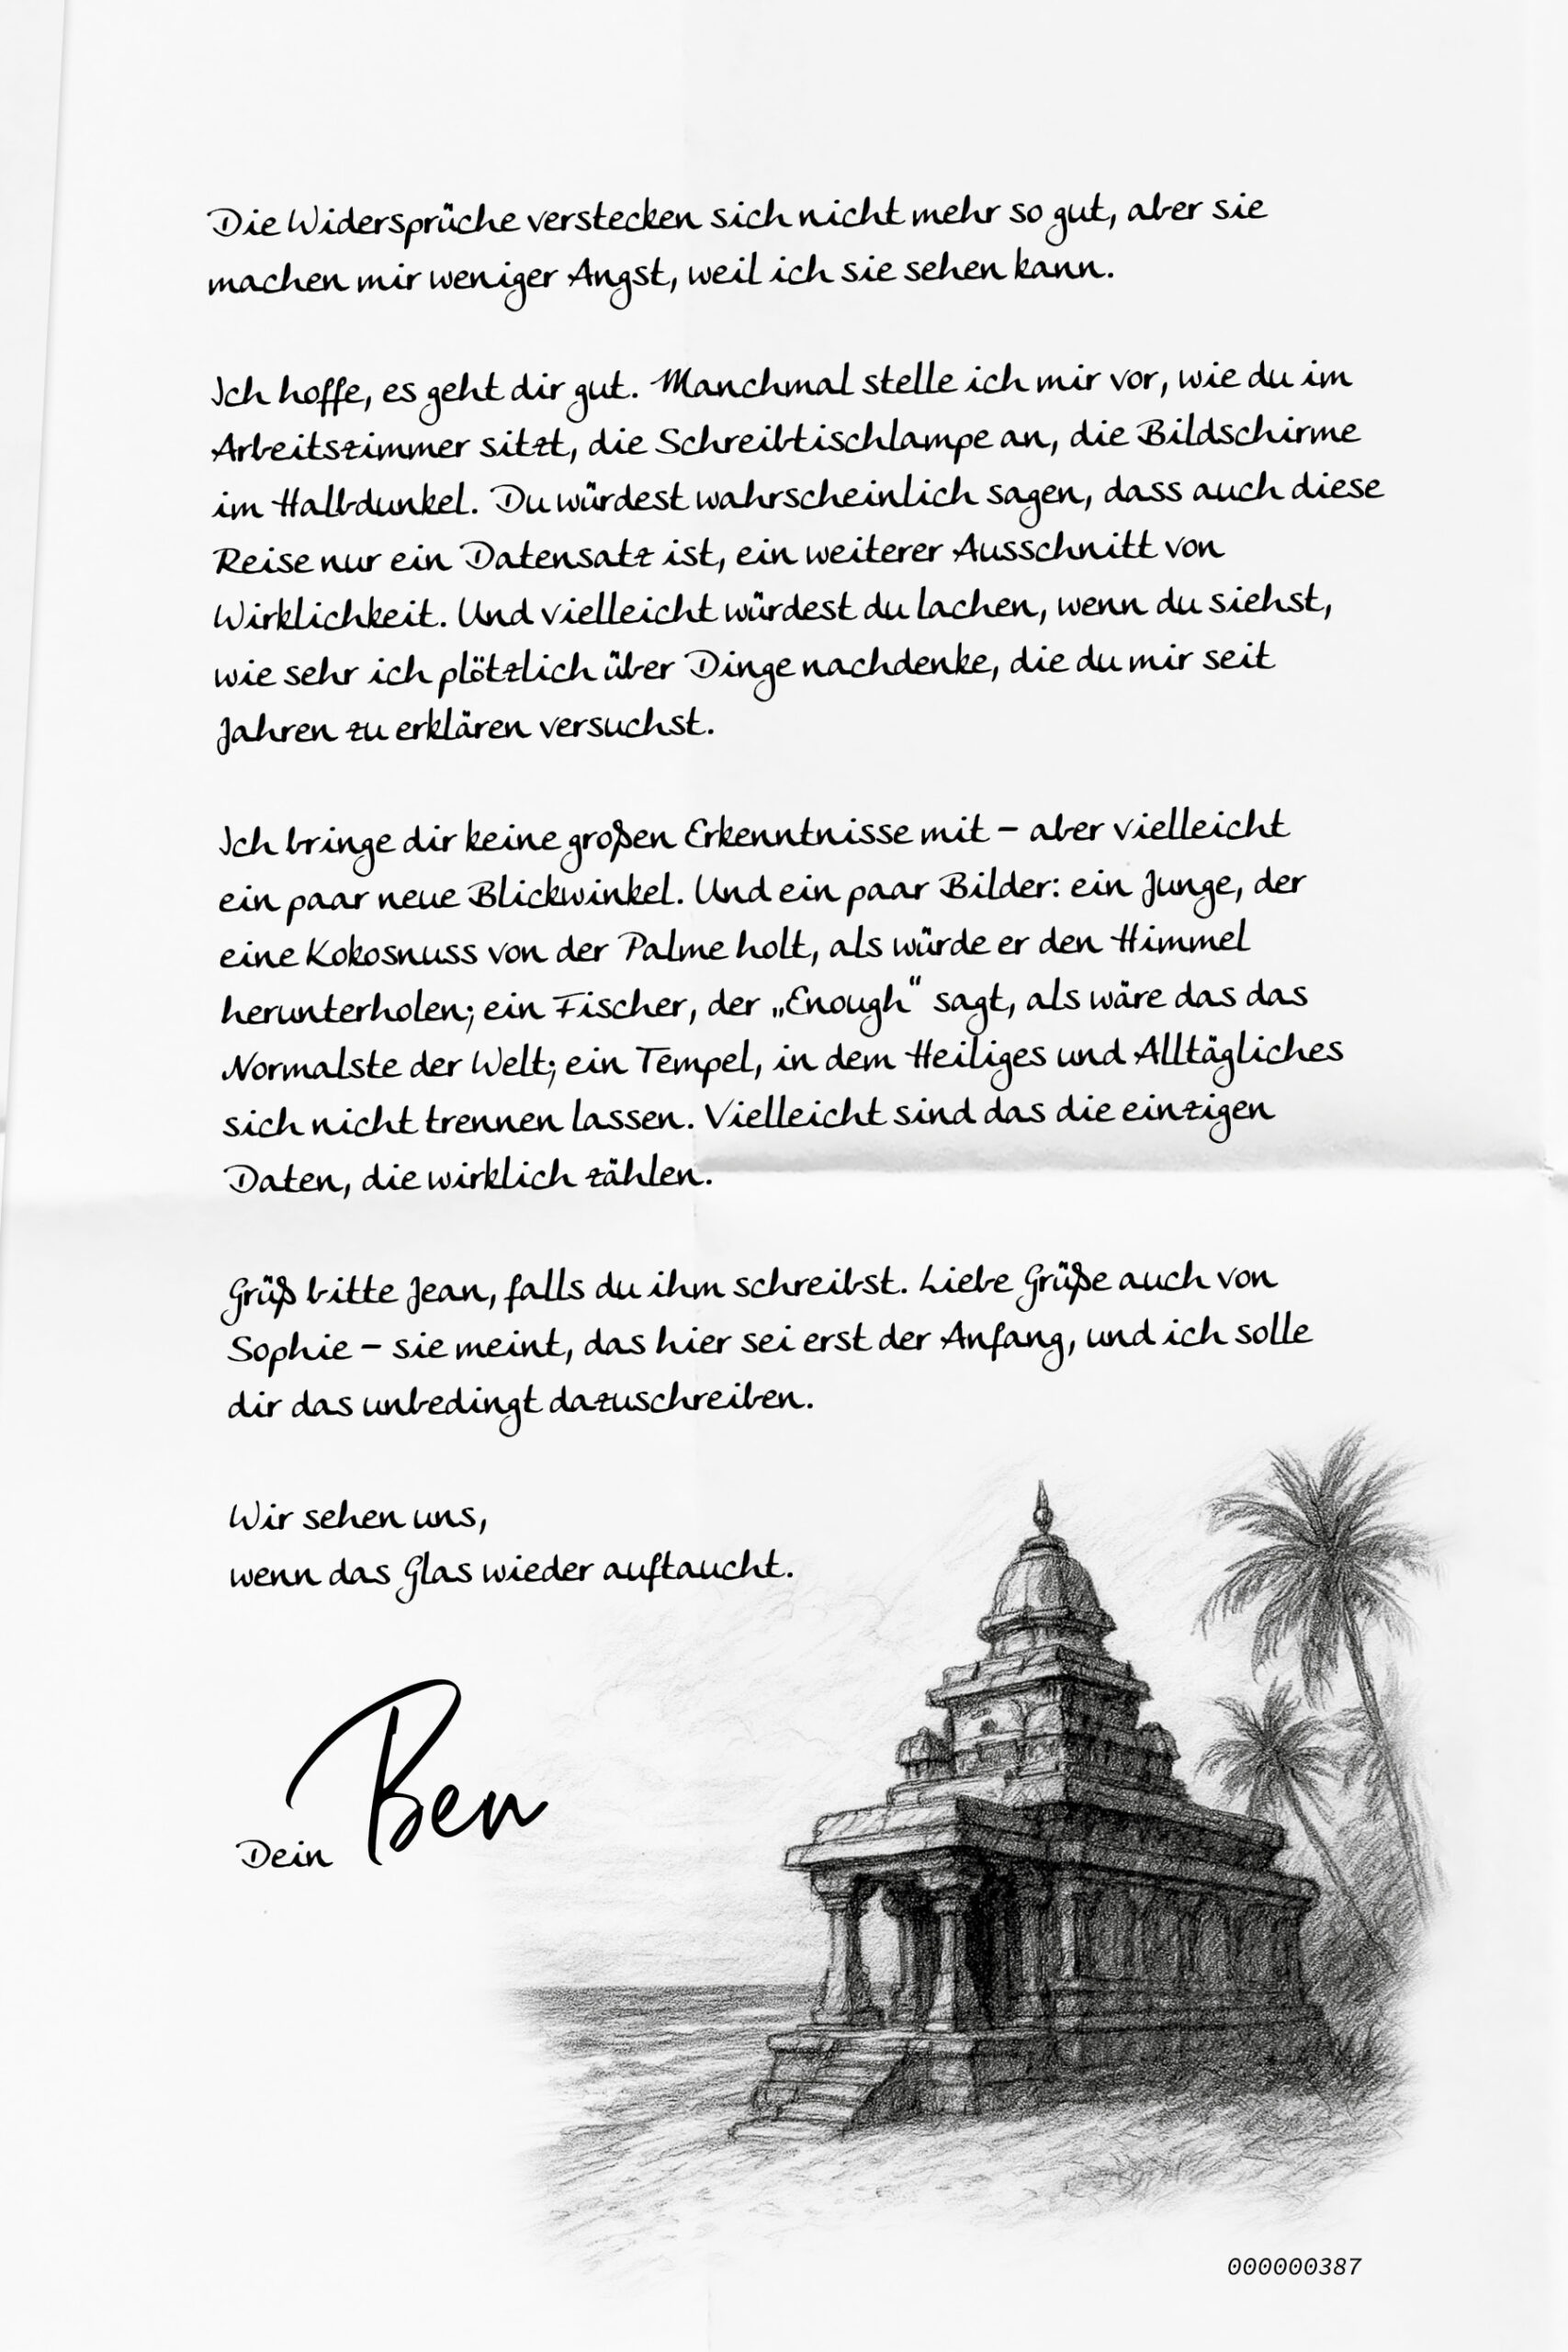 Die Widersprüche verstecken sich nicht mehr so gut, aber sie
machen mir weniger Angst, weil ich sie sehen kann.
Ich hoffe, es geht dir gut. Manchmal stelle ich mir vor, wie du im
Arbeitszimmer sitzt, die Schreibtischlampe an, die Bildschirme
im Halbdunkel. Du würdest wahrscheinlich sagen, dass auch diese
Reise nur ein Datensatz ist, ein weiterer Ausschnitt von
Wirklichkeit. Und vielleicht würdest du lachen, wenn du siehst,
wie sehr ich plötzlich über Dinge nachdenke, die du mir seit
Jahren zu erklären versuchst.
Ich bringe dir keine großen Erkenntnisse mit – aber vielleicht
ein paar neue Blickwinkel. Und ein paar Bilder: ein Junge, der
eine Kokosnuss von der Palme holt, als würde er den Himmel
herunterholen; ein Fischer, der „Enough“ sagt, als wäre das das
Normalste der Welt; ein Tempel, in dem Heiliges und Alltägliches
sich nicht trennen lassen. Vielleicht sind das die einzigen
Daten, die wirklich zählen.
Grüß bitte Jean, falls du ihm schreibst. Liebe Grüße auch von
Sophie – sie meint, das hier sei erst der Anfang, und ich solle
dir das unbedingt dazuschreiben.
Wir sehen uns,
wenn das Glas wieder auftaucht.
Dein Ben
000000387